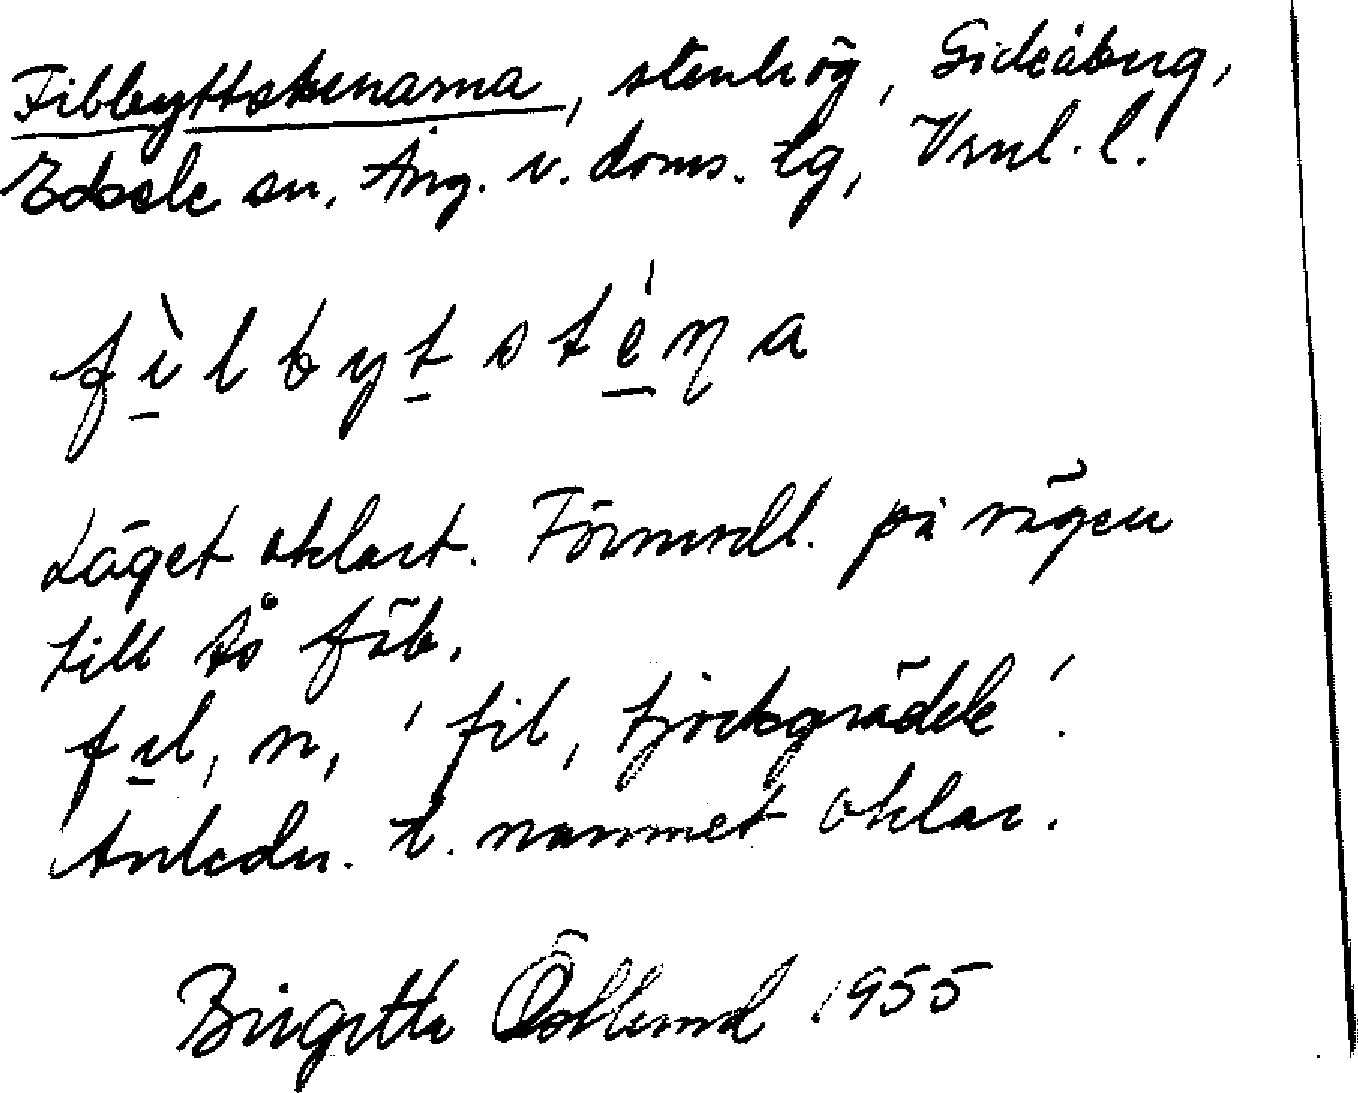 Filbyttstenarna, stenhög, Gideåberg,
Edsele sn, Ång. v. doms. tg, Vrnl. l.
fìlbytsténa
Läget oklart. Förmodl. på vägen
till Ås fäb.
fil, n, 'fil, tjockgrädde'.
Anledn. t. namnet oklar.
Birgitta Östlund 1955